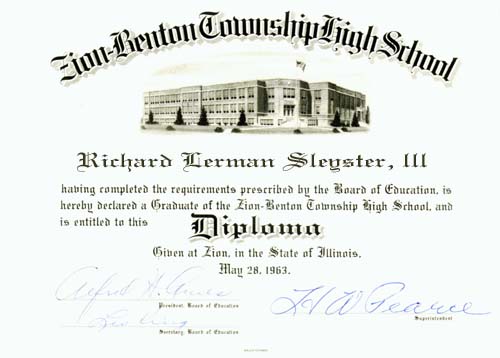 Zion-Benton Township High School
Richard Lerman Sleyster, III
having completed the requirements prescribed by the Board of Education, is
hereby declared a Graduate of the Zion-Benton Township High School, and
is entitled to this Diploma
Given at Zion, in the State of Illinois,
May 28, 1963.
Alfred H.
President, Board of Education
H W Pearce
Superintendent
Secretary, Board of Education